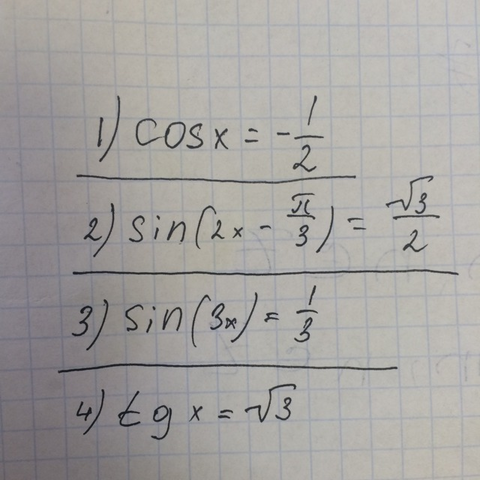 1) cos x = - 1/2
2) sin(2x - π/3) = √3/2
3) sin(3x) = 1/3
4) tg x = √3